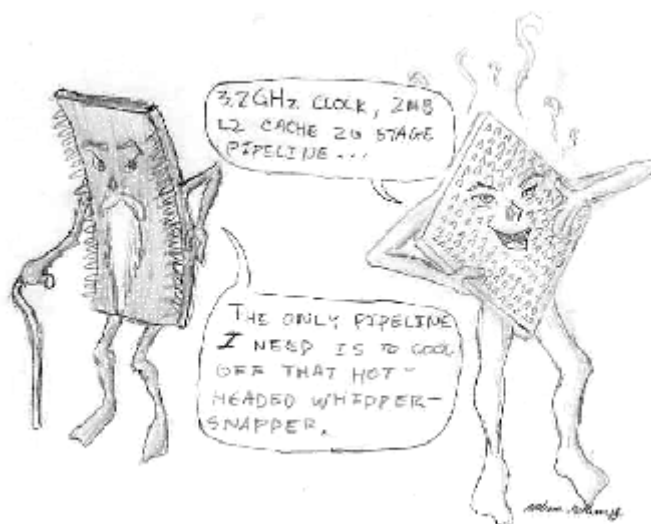 3.2GHz CLOCK, 2MB
L2 CACHE 20 STAGE
PIPELINE...
THE ONLY PIPELINE
I NEED IS TO COOL
OFF THAT HOT-
HEADED WHIPPER-
SNAPPER.